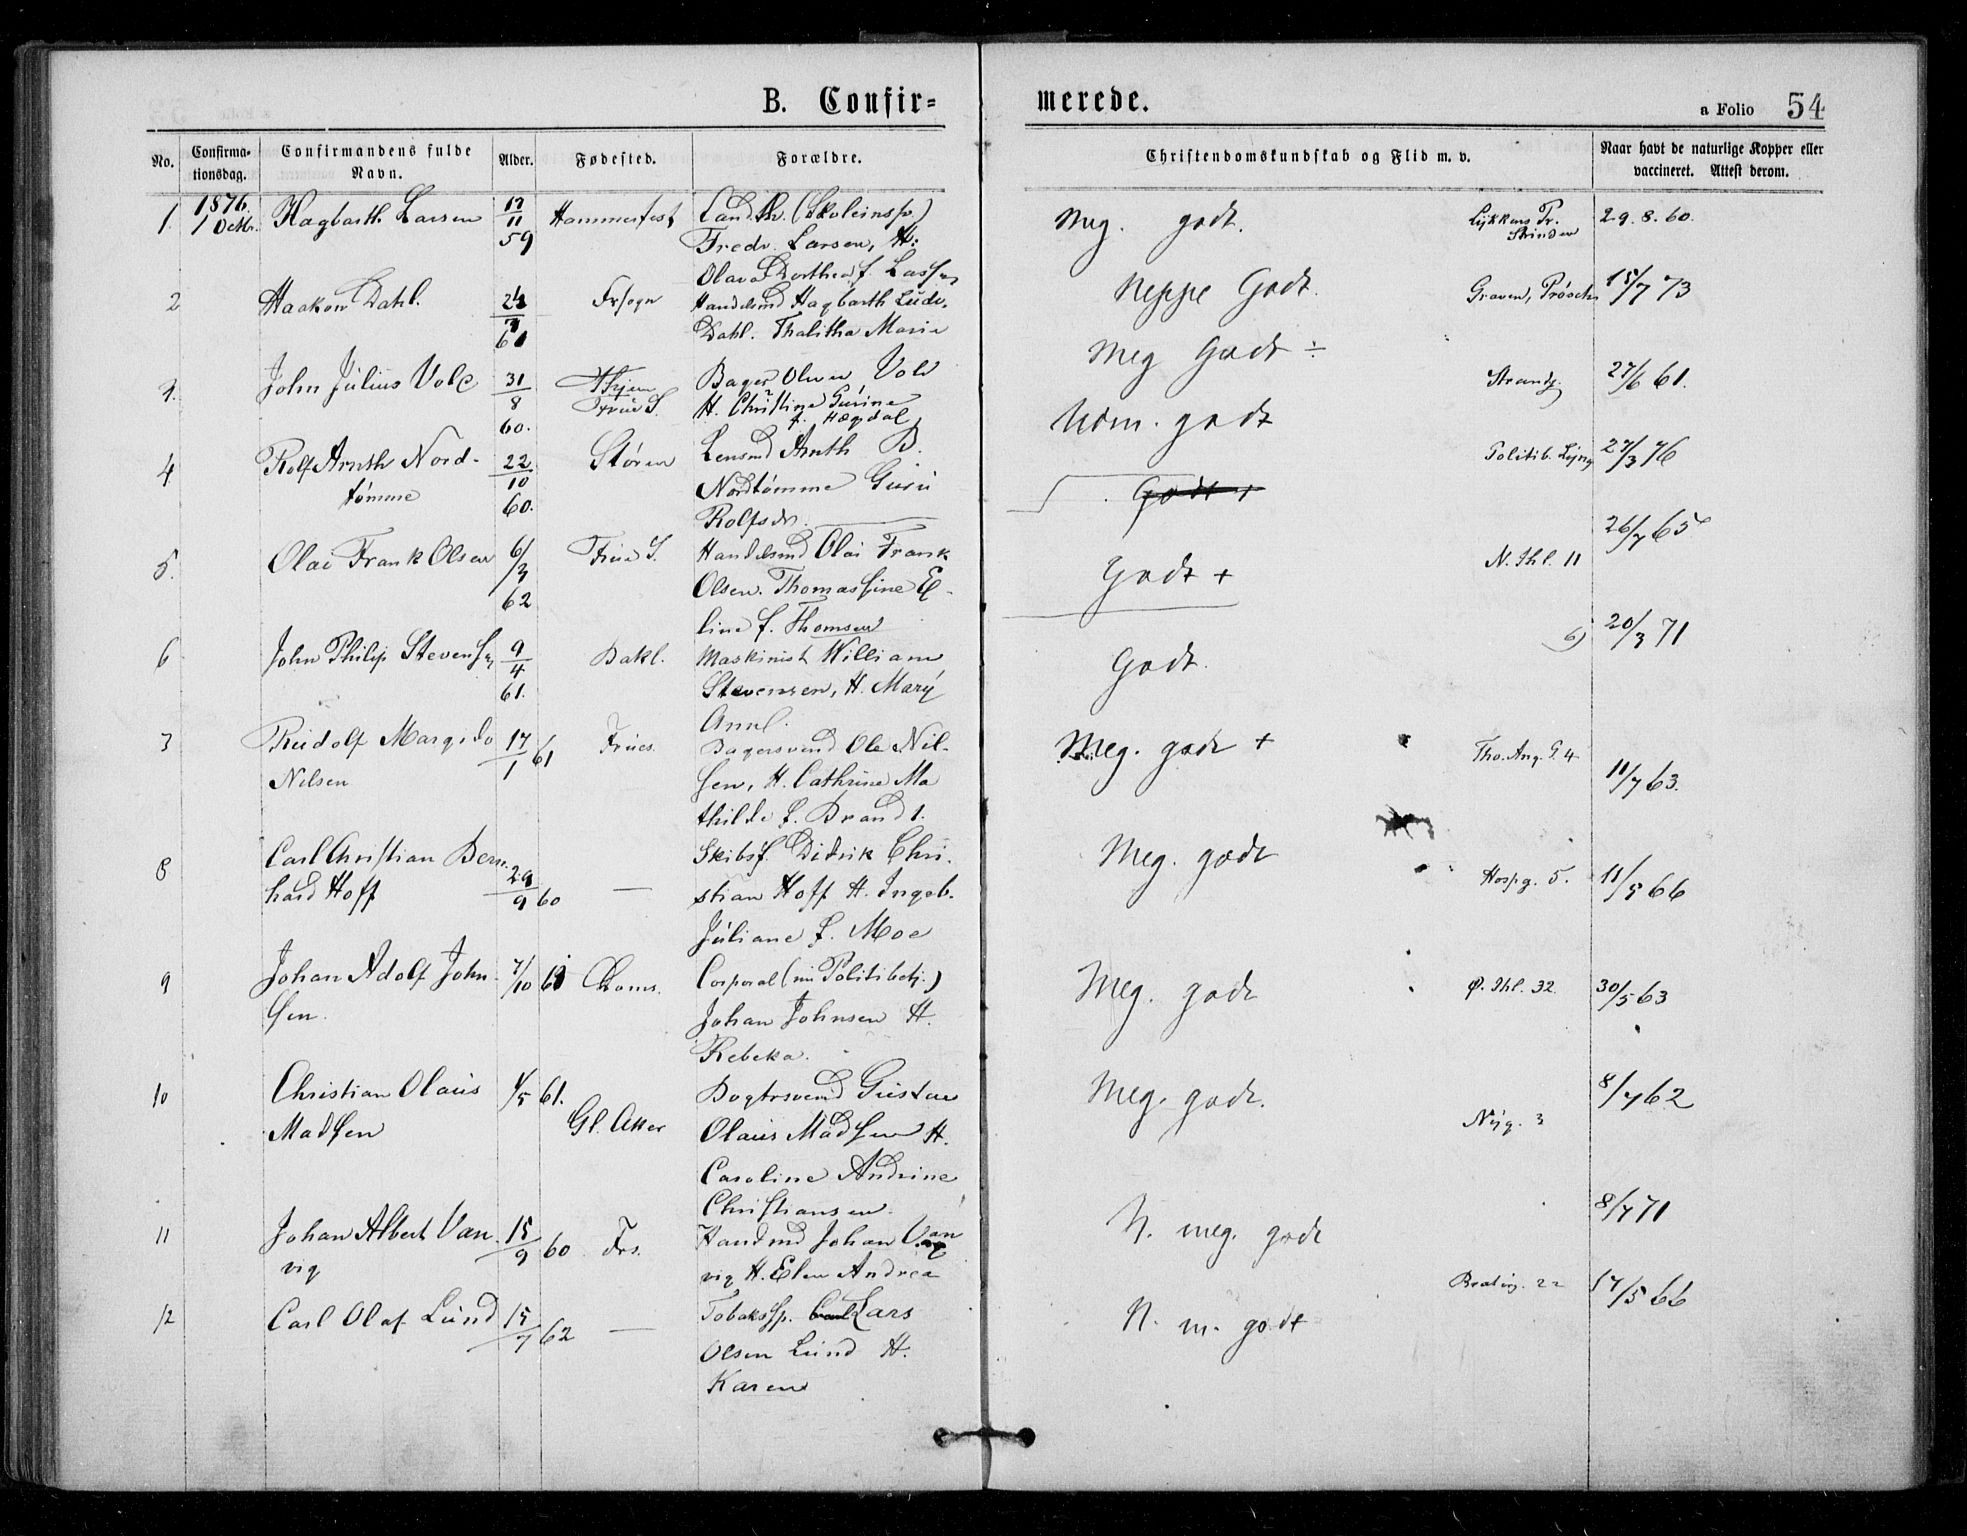 B. Confir=
merede.
a Folio 54
No.
Confirma-
tionsdag.
Confirmandens fulde
Navn.
Alder.
Fødested.
Forældre.
Christendomskundskab og Flid m. v.
Naar havt de naturlige Kopper eller
vaccineret. Attest derom.
1876
1. 1 Octbr. Hagbarth Larsen 17/11 59 Hammerfest Cand.th. (Skoleinsp.)
Fredr. Larsen, H:
Olava Dorthea f. Lassen
Meg. godt. Lykkens Pr. Strinden 29. 8. 60.
2 Haakon Dahl. Frsogn Handelsmd Hagbarth Ludv.
Dahl. Thalitha Marie
Neppe Godt. Graven, 15/7 73
3. John Julius Vold 31/8 60. Hjem
Frue S. Bager Olaus Vold
H. Christine Gurine
f. Hægdal
Meg Godt ÷ Strandg. 27/6 61.
4 Rolf Arnth Nord-
tømme 22/10 60. Støren Lensmd Arnth B.
Nordtømme Guru
Rolfsdr.
Udm. godt Politib. Lyng 27/3 76
Godt +
5. Olai Frank Olsen 6/3 62 Frue S. Handelsmd Olai Frank
Olsen. Thomassine El-
line f. Thomsen
Godt + N. Ihl. 11 26/7 65
6 John Philip Stevensen 9/4 61. Bakl. Maskinist William
Stevensen, H. Mary
Anne.
Godt. 6) 20/3 71
7 Rudolf Margido
Nilsen 17/1 61 Frues. Bagersvend Ole Nil-
sen, H. Cathrine Ma
thilde f. Brandt.
Meg. godt + Tho. Ang. G. 4 11/7 63.
8 Carl Christian Bern-
hard Hoff 29/9 60 — Skibsf. Didrik Chri-
stian Hoff H. Ingeb.
Juliane f. Moe
Meg. godt Hospg. 5. 11/5 66
9 Johan Adolf John-
sen. 7/10 60 Doms. Corporal (nu Politibetj.)
Johan Johnsen H.
Rebeka.
Meg. godt Ø. Ihl. 32. 30/5 63
10 Christian Olaus
Madsen 1/5 61. Gl. Aker Bogtrsvend Gustav
Olaus Madsen H.
Caroline Andrine
Christiansen.
Meg. godt. Nyg. 3 8/7 62
11 Johan Albert Van-
vig 15/9 60 Frs. Handmd Johan Van
vig H. Elen Andrea
N. meg. godt 8/7 71
12 Carl Olaf Lund 15/7 62 — Tobakssp. Lars
Olsen Lund H.
Karen
N. m. godt Brattrg. 22 17/5 66